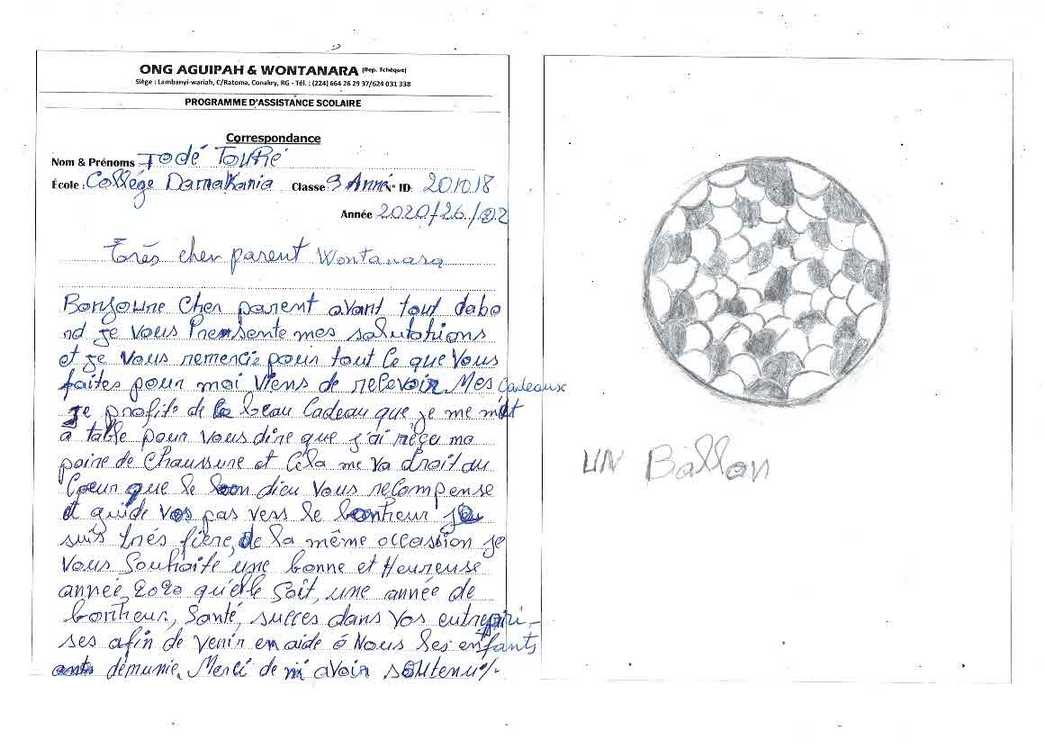 ONG AGUIPAH & WONTANARA (Rep. Tchèque)
Siège : Lambanyi-wariah, C/Ratoma, Conakry, RG - Tél. : (224) 664 26 29 37/624 031 338
PROGRAMME D'ASSISTANCE SCOLAIRE
Correspondance
Nom & Prénoms Todé Touré
École : Collége Damakania Classe 9 Année ID: 201018
Année 2020/26/02
Trés cher parent Wontanara
Bonjoure Cher parent avant tout dabo
rd je vous Presente mes salutations
et je vous remercie pour tout ce que vous
faites pour moi viens de relevoir Mes Cadeaux
je profite de le beau Cadeau que je me mét
à table pour vous dire que j'ai réçu ma
paire de chaussure et Cela me va droit au
Coeur que le bon dieu vous recompense
et guide vos pas vers le bonheur je
suis trés fière, de la même occassion je
vous Souhaite une bonne et Heureuse
année 2020 qu'elle Soit, une année de
bonheur, Santé, succes dans vos entrepri-
ses afin de venir en aide ó Nous les enfants
démunie. Merci de m'avoir soutenu%
UN Ballon